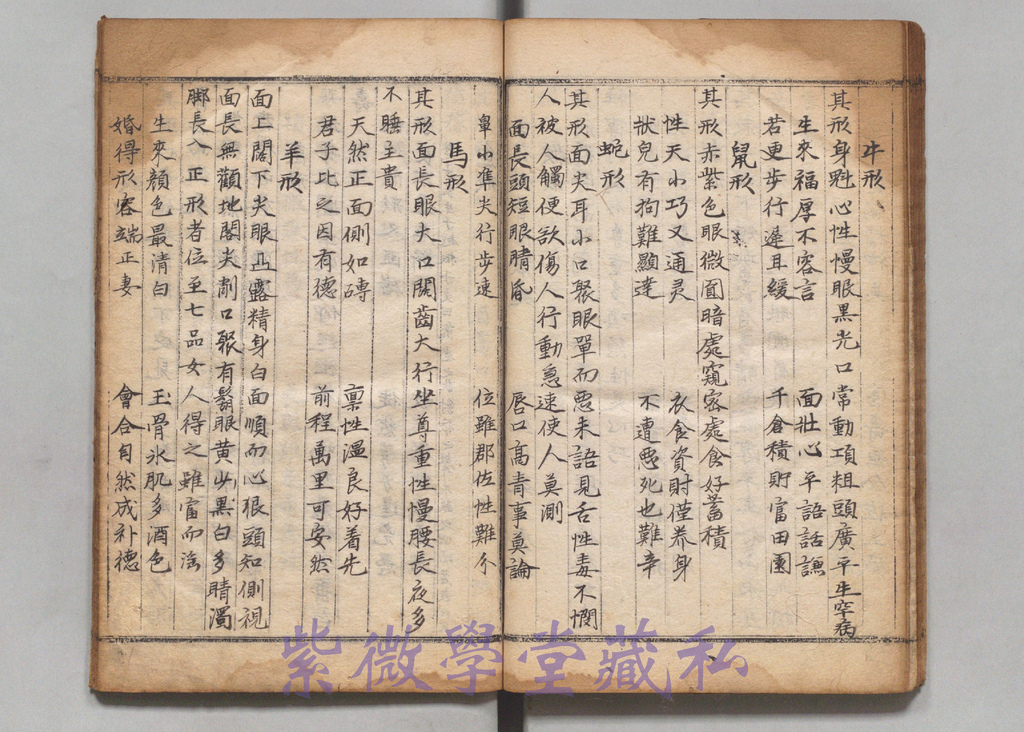 牛形
其形身魁心性慢眼黑光口常動項粗頭廣平生罕病
生來福厚不容言 面壯心平語話謙
若更步行遲且緩 千倉積貯富田園
鼠形
其形赤紫色眼微圓暗處窺密處食好蓄積
性天小巧又通灵 衣食資財僅养身
狀皃有狗難顯達 不遭惡死也難辛
蛇形
其形面尖耳小口聚眼單而惡未語見舌性毒不憫
人被人觸便欲傷人行動急速使人莫測
面長頭短眼睛昏 唇口高青事莫論
鼻小準尖行步速 位雖郡佐性難介
馬形
其形面長眼大口闊齒大行坐尊重性慢腰長夜多
不睡主貴
天然正面側如磚 禀性溫良好着先
君子比之因有德 前程萬里可安然
羊形
面上闊下尖眼凸露精身白面順而心狠頭知側視
面長無顴地閣尖削口聚有鬍眼黃少黑白多睛濁
脚長入正形者位至七品女人得之雖富而淫
生來顏色最清白 玉骨氷肌多酒色
婚得形容端正妻 會合自然成补德
紫微學堂藏私